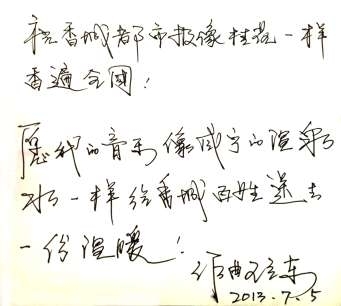 祝香城都市报像桂花一样
香遍全国！
愿我的音乐像咸宁的温泉
水一样给香城百姓送去
一份温暖！
作曲 东
2013.7.5